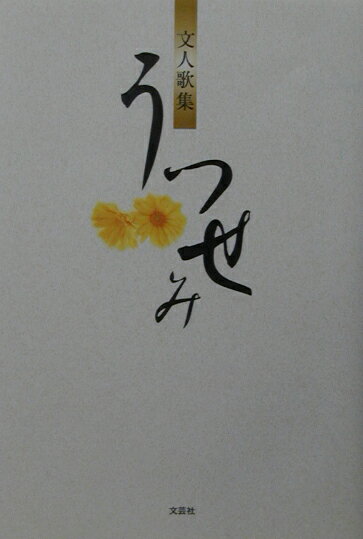 文人歌集
うつせみ
文芸社